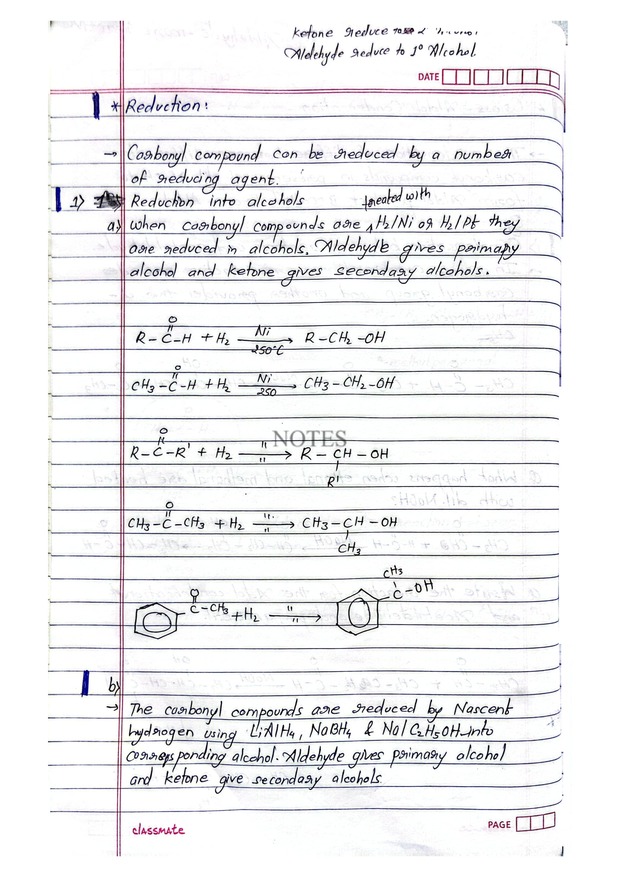 Ketone reduce to
Aldehyde reduce to 1° Alcohol.
DATE
* Reduction:
→ Carbonyl compound can be reduced by a number
of reducing agent.
1) Reduction into alcohols
treated with
a) when carbonyl compounds are ∧ H2/Ni or H2/Pt they
are reduced in alcohols. Aldehyde gives primary
alcohol and ketone gives secondary alcohols.
O
R – C – H + H2 Ni 250°C → R – CH2 – OH
O
CH3 – C – H + H2 Ni 250 → CH3 – CH2 – OH
O
R – C – R' + H2 " " → R – CH – OH
R'
NOTES
O
CH3 – C – CH3 + H2 " " → CH3 – CH – OH
CH3
O CH3
C – CH3 + H2 " " → C – OH
b)
→ The carbonyl compounds are reduced by Nascent
hydrogen using LiAlH4, NaBH4 & Na/C2H5OH into
corresponding alcohol. Aldehyde gives primary alcohol
and ketone give secondary alcohols
classmate
PAGE